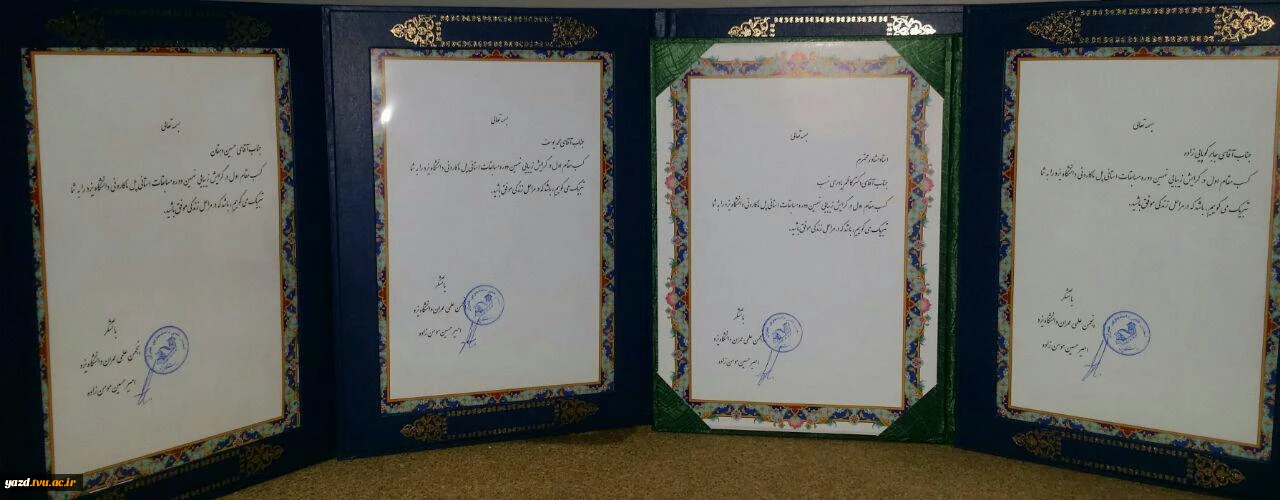 بسمه تعالی
جناب آقای جابر کوپائی زاده
کسب مقام اول در گرایش زیبایی نخستین دوره مسابقات استانی پل ماکارونی دانشگاه یزد را به شما
تبریک می گوییم، باشد که در مراحل زندگی موفق باشید.
با تشکر
انجمن علمی عمران دانشگاه یزد
امیرحسین مومن زاده
بسمه تعالی
استاد مشاور محترم
جناب آقای دکتر کاظم یاوری نسب
کسب مقام اول در گرایش زیبایی نخستین دوره مسابقات استانی پل ماکارونی دانشگاه یزد را به شما
تبریک می گوییم، باشد که در مراحل زندگی موفق باشید.
با تشکر
انجمن علمی عمران دانشگاه یزد
امیرحسین مومن زاده
بسمه تعالی
جناب آقای محمد یوسف
کسب مقام اول در گرایش زیبایی نخستین دوره مسابقات استانی پل ماکارونی دانشگاه یزد را به شما
تبریک می گوییم، باشد که در مراحل زندگی موفق باشید.
با تشکر
انجمن علمی عمران دانشگاه یزد
امیرحسین مومن زاده
بسمه تعالی
جناب آقای حسین دهقان
کسب مقام اول در گرایش زیبایی نخستین دوره مسابقات استانی پل ماکارونی دانشگاه یزد را به شما
تبریک می گوییم، باشد که در مراحل زندگی موفق باشید.
با تشکر
انجمن علمی عمران دانشگاه یزد
امیرحسین مومن زاده
yazd.tvu.ac.ir